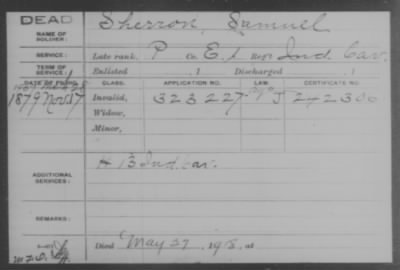 DEAD
NAME OF SOLDIER: Sherron, Samuel
SERVICE: Late rank, P Co. E, 1 Reg't Ind. Cav.
TERM OF SERVICE: Enlisted , 1 Discharged , 1
DATE OF FILING. CLASS. APPLICATION NO. LAW. CERTIFICATE NO.
1879 Nov. 17 Invalid, 323227 J 242300
Widow,
Minor,
ADDITIONAL SERVICES: H 13 Ind. Cav.
REMARKS:
Died May 27, 1918, at